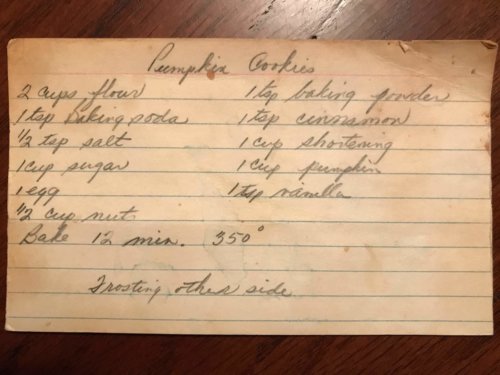 Pumpkin Cookies
2 cups flour 1 tsp baking powder
1 tsp baking soda 1 tsp cinnamon
1/2 tsp salt 1 cup shortening
1 cup sugar 1 cup pumpkin
1 egg 1 tsp vanilla
1/2 cup nut
Bake 12 min. 350°
Frosting other side